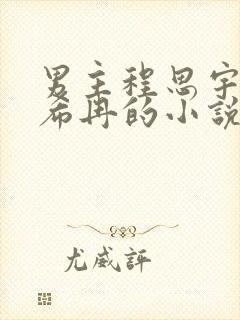 男主程思宇
希冉的小説
尤威評